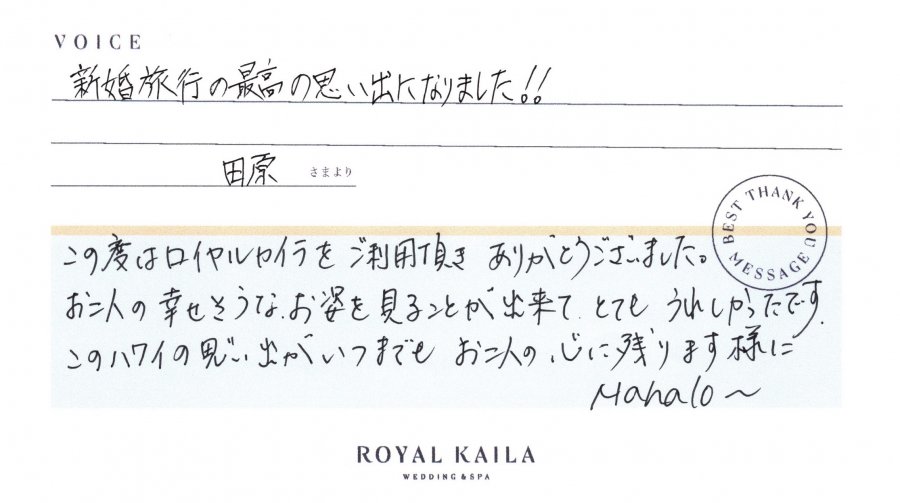 VOICE
新婚旅行の最高の思い出になりました!!
田原 さまより
BEST THANK YOU MESSAGE
この度はロイヤルカイラをご利用頂き ありがとうございました。
お二人の幸せそうな、お姿を見ることが出来て、とても うれしかったです。
このハワイの思い出がいつまでも お二人の心に残ります様に
Mahalo〜
ROYAL KAILA
WEDDING & SPA